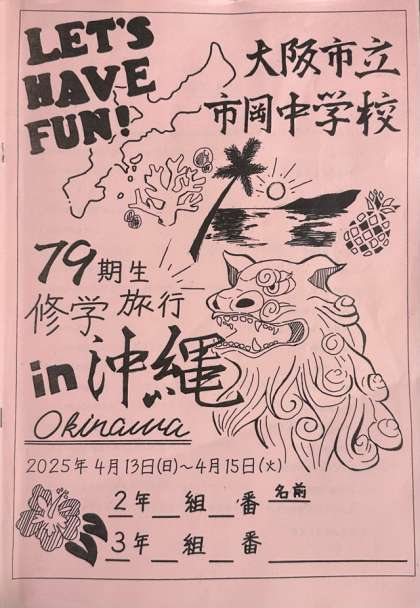 LET'S
HAVE
FUN!
大阪市立
市岡中学校
79期生
修学旅行
in沖縄
Okinawa
2025年4月13日(日)~4月15日(火)
2年__組__番 名前
3年__組__番